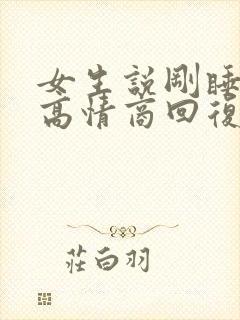 女生說剛睡
高情商回復
莊白羽